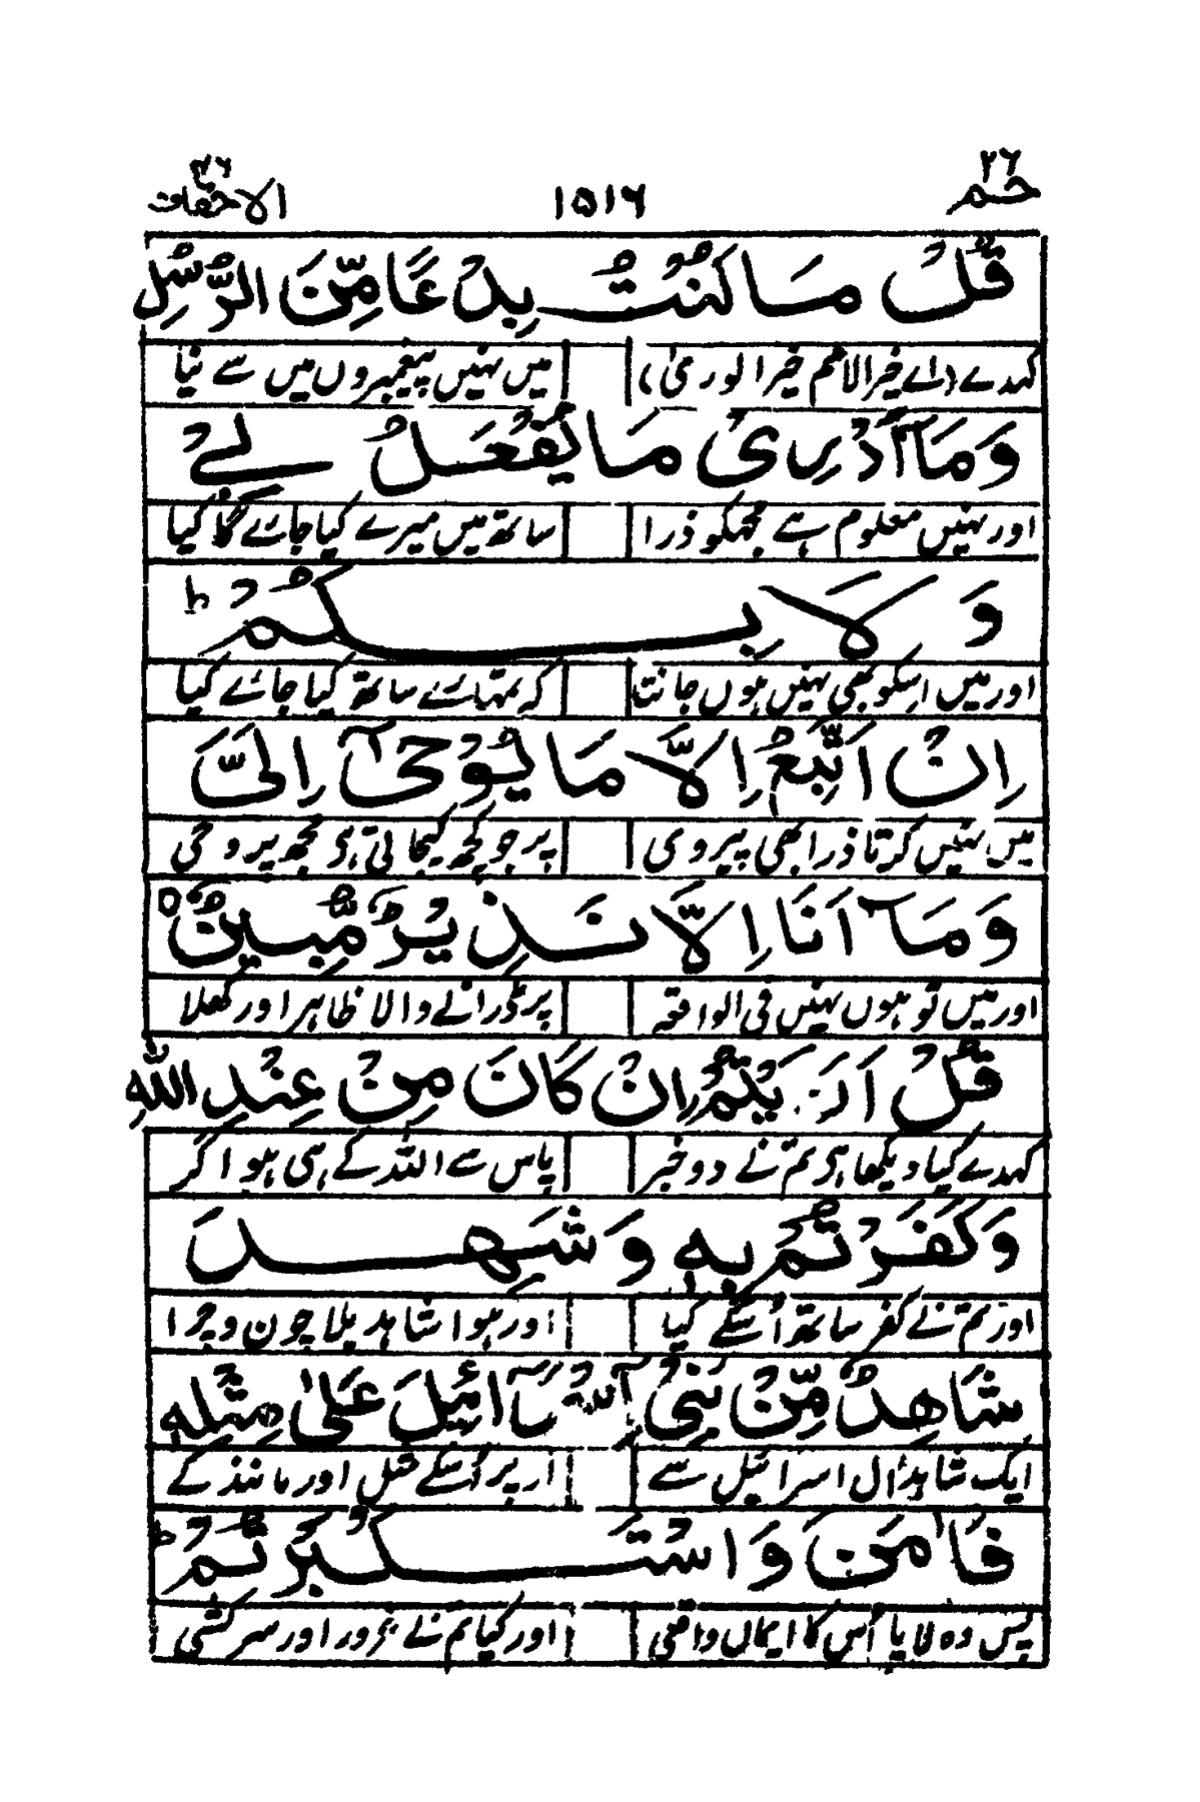 حٰم ٢٦ ١٥١٦ الاحقاف ٤٦
قُلْ مَا كُنْتُ بِدْعًا مِّنَ الرُّسُلِ
کہدے (اے خیر الامم خیر الوریٰ) میں نہیں پیغمبروں میں سے نیا
وَمَآ اَدْرِیْ مَا یُفْعَلُ بِیْ
اور نہیں معلوم ہے مجھکو ذرا ساتھ میں میرے کیا جائے گا کیا
وَلَا بِكُمْ ؕ
اور میں اسکو بھی نہیں ہوں جانتا کہ تمہارے ساتھ کیا جائے کیا
اِنْ اَتَّبِعُ اِلَّا مَا یُوْحٰٓی اِلَیَّ
میں نہیں کرتا ذرا بھی پیروی پر جو کچھ کیجاتی ہی مجھ پر وحی
وَمَآ اَنَا اِلَّا نَذِیْرٌ مُّبِیْنٌ
اور میں تو ہوں نہیں فی الواقعہ پر ڈرانے والا ظاہر اور کھلا
قُلْ اَرَءَیْتُمْ اِنْ كَانَ مِنْ عِنْدِ اللّٰهِ
کہدے کیا دیکھا ہی تم نے دو خبر پاس سے اللہ کے ہی ہو اگر
وَكَفَرْتُمْ بِهٖ وَشَهِدَ
اور تم نے کفر ساتھ اُسکے کیا اور ہوا شاہد بلا چون و چرا
شَاهِدٌ مِّنْۢ بَنِیْٓ اِسْرَآءِیْلَ عَلٰی مِثْلِهٖ
ایک شاہد آل اسرائیل سے اوپر اُسکے مثل اور مانند کے
فَاٰمَنَ وَاسْتَكْبَرْتُمْ ؕ
پس وہ لایا اُس کا ایماں واقعی اور کیا تم نے غرور اور سرکشی